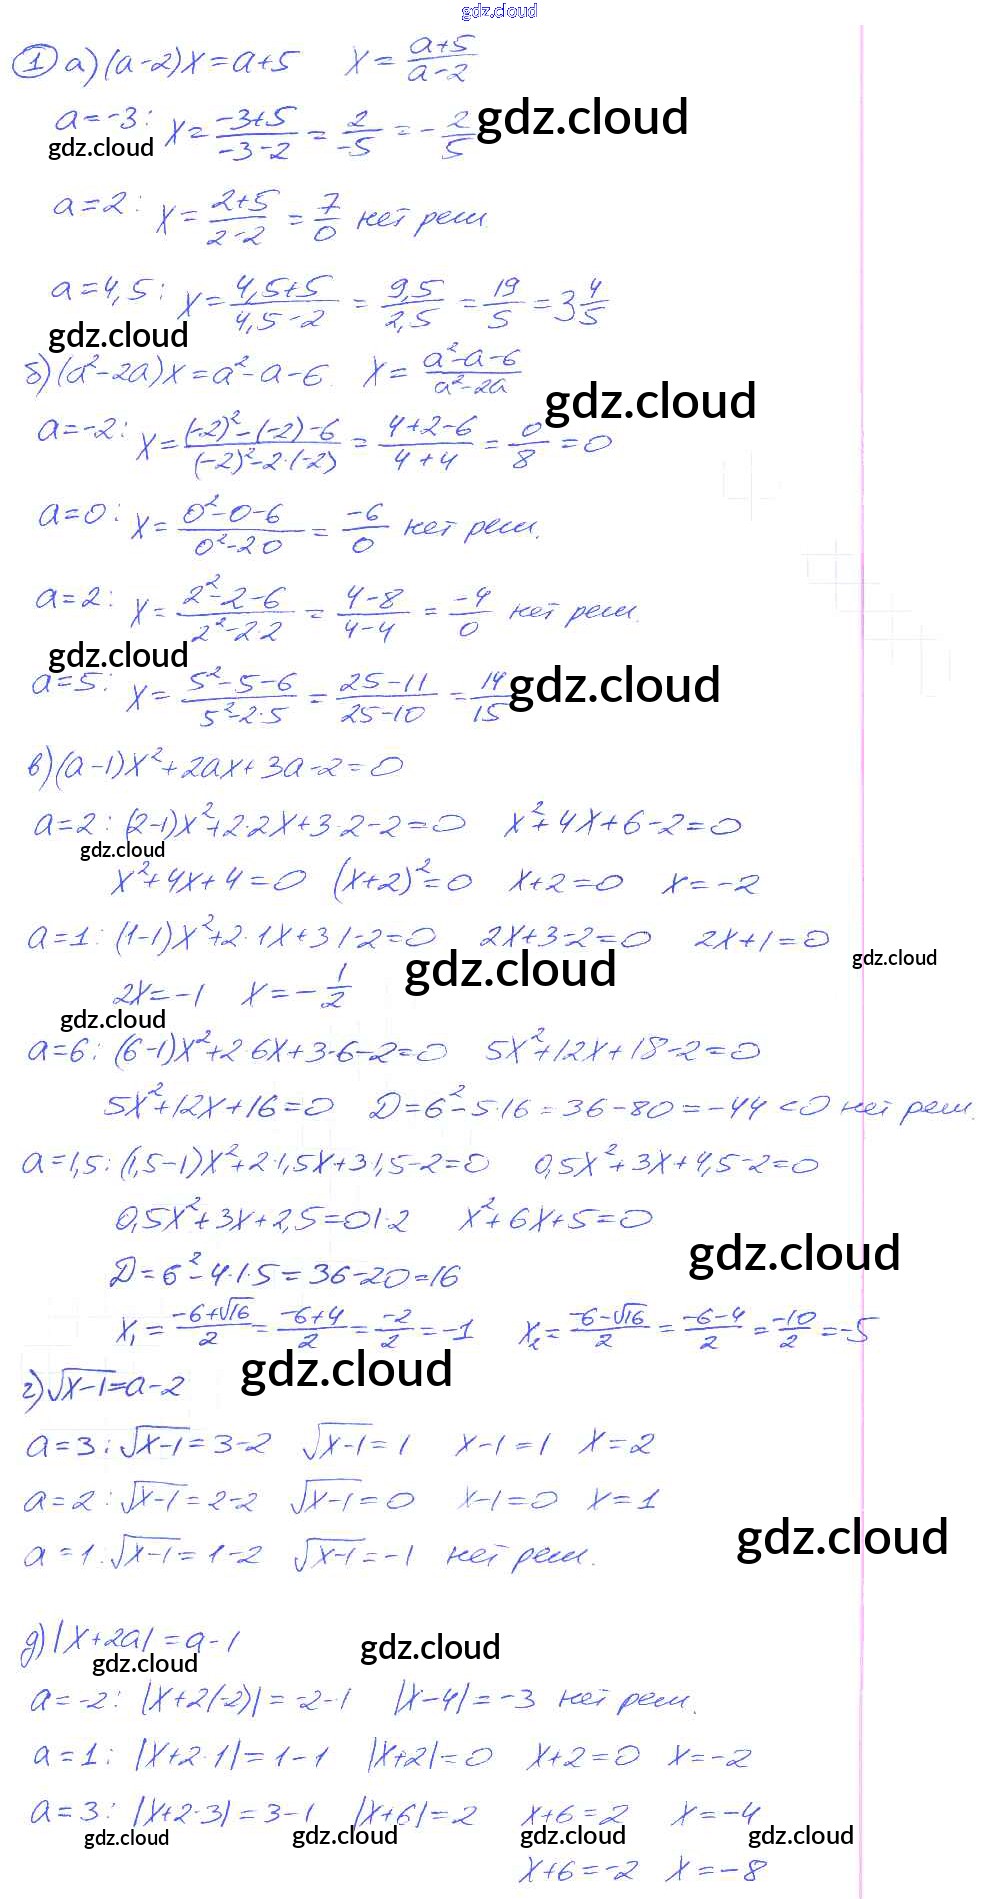 gdz.cloud
1 а) (a-2)x = a+5   x = (a+5)/(a-2)
a=-3: x = (-3+5)/(-3-2) = 2/(-5) = -2/5 gdz.cloud
gdz.cloud
a=2: x = (2+5)/(2-2) = 7/0 нет реш.
a=4,5: x = (4,5+5)/(4,5-2) = 9,5/2,5 = 19/5 = 3 4/5
gdz.cloud
б) (a²-2a)x = a²-a-6.   x = (a²-a-6)/(a²-2a)
gdz.cloud
a=-2: x = ((-2)²-(-2)-6)/((-2)²-2·(-2)) = (4+2-6)/(4+4) = 0/8 = 0
a=0: x = (0²-0-6)/(0²-20) = -6/0 нет реш.
a=2: x = (2²-2-6)/(2²-2·2) = (4-8)/(4-4) = -4/0 нет реш.
gdz.cloud
a=5: x = (5²-5-6)/(5²-2·5) = (25-11)/(25-10) = 14/15 gdz.cloud
в) (a-1)x²+2ax+3a-2=0
a=2: (2-1)x²+2·2x+3·2-2=0   x²+4x+6-2=0
gdz.cloud
x²+4x+4=0   (x+2)²=0   x+2=0   x=-2
a=1: (1-1)x²+2·1x+3·1-2=0   2x+3-2=0   2x+1=0
gdz.cloud gdz.cloud
2x=-1   x=-1/2
gdz.cloud
a=6: (6-1)x²+2·6x+3·6-2=0   5x²+12x+18-2=0
5x²+12x+16=0   D=6²-5·16=36-80=-44<0 нет реш.
a=1,5: (1,5-1)x²+2·1,5x+3·1,5-2=0   0,5x²+3x+4,5-2=0
0,5x²+3x+2,5=0|·2   x²+6x+5=0
gdz.cloud
D=6²-4·1·5=36-20=16
x₁ = (-6+√16)/2 = (-6+4)/2 = -2/2 = -1   x₂ = (-6-√16)/2 = (-6-4)/2 = -10/2 = -5
gdz.cloud
г) √(x-1)=a-2
a=3: √(x-1)=3-2   √(x-1)=1   x-1=1   x=2
a=2: √(x-1)=2-2   √(x-1)=0   x-1=0   x=1
gdz.cloud
a=1: √(x-1)=1-2   √(x-1)=-1   нет реш.
д) |x+2a|=a-1
gdz.cloud gdz.cloud
a=-2: |x+2(-2)|=-2-1   |x-4|=-3 нет реш.
a=1: |x+2·1|=1-1   |x+2|=0   x+2=0   x=-2
a=3: |x+2·3|=3-1   |x+6|=2   x+6=2   x=-4
gdz.cloud gdz.cloud gdz.cloud gdz.cloud
x+6=-2   x=-8